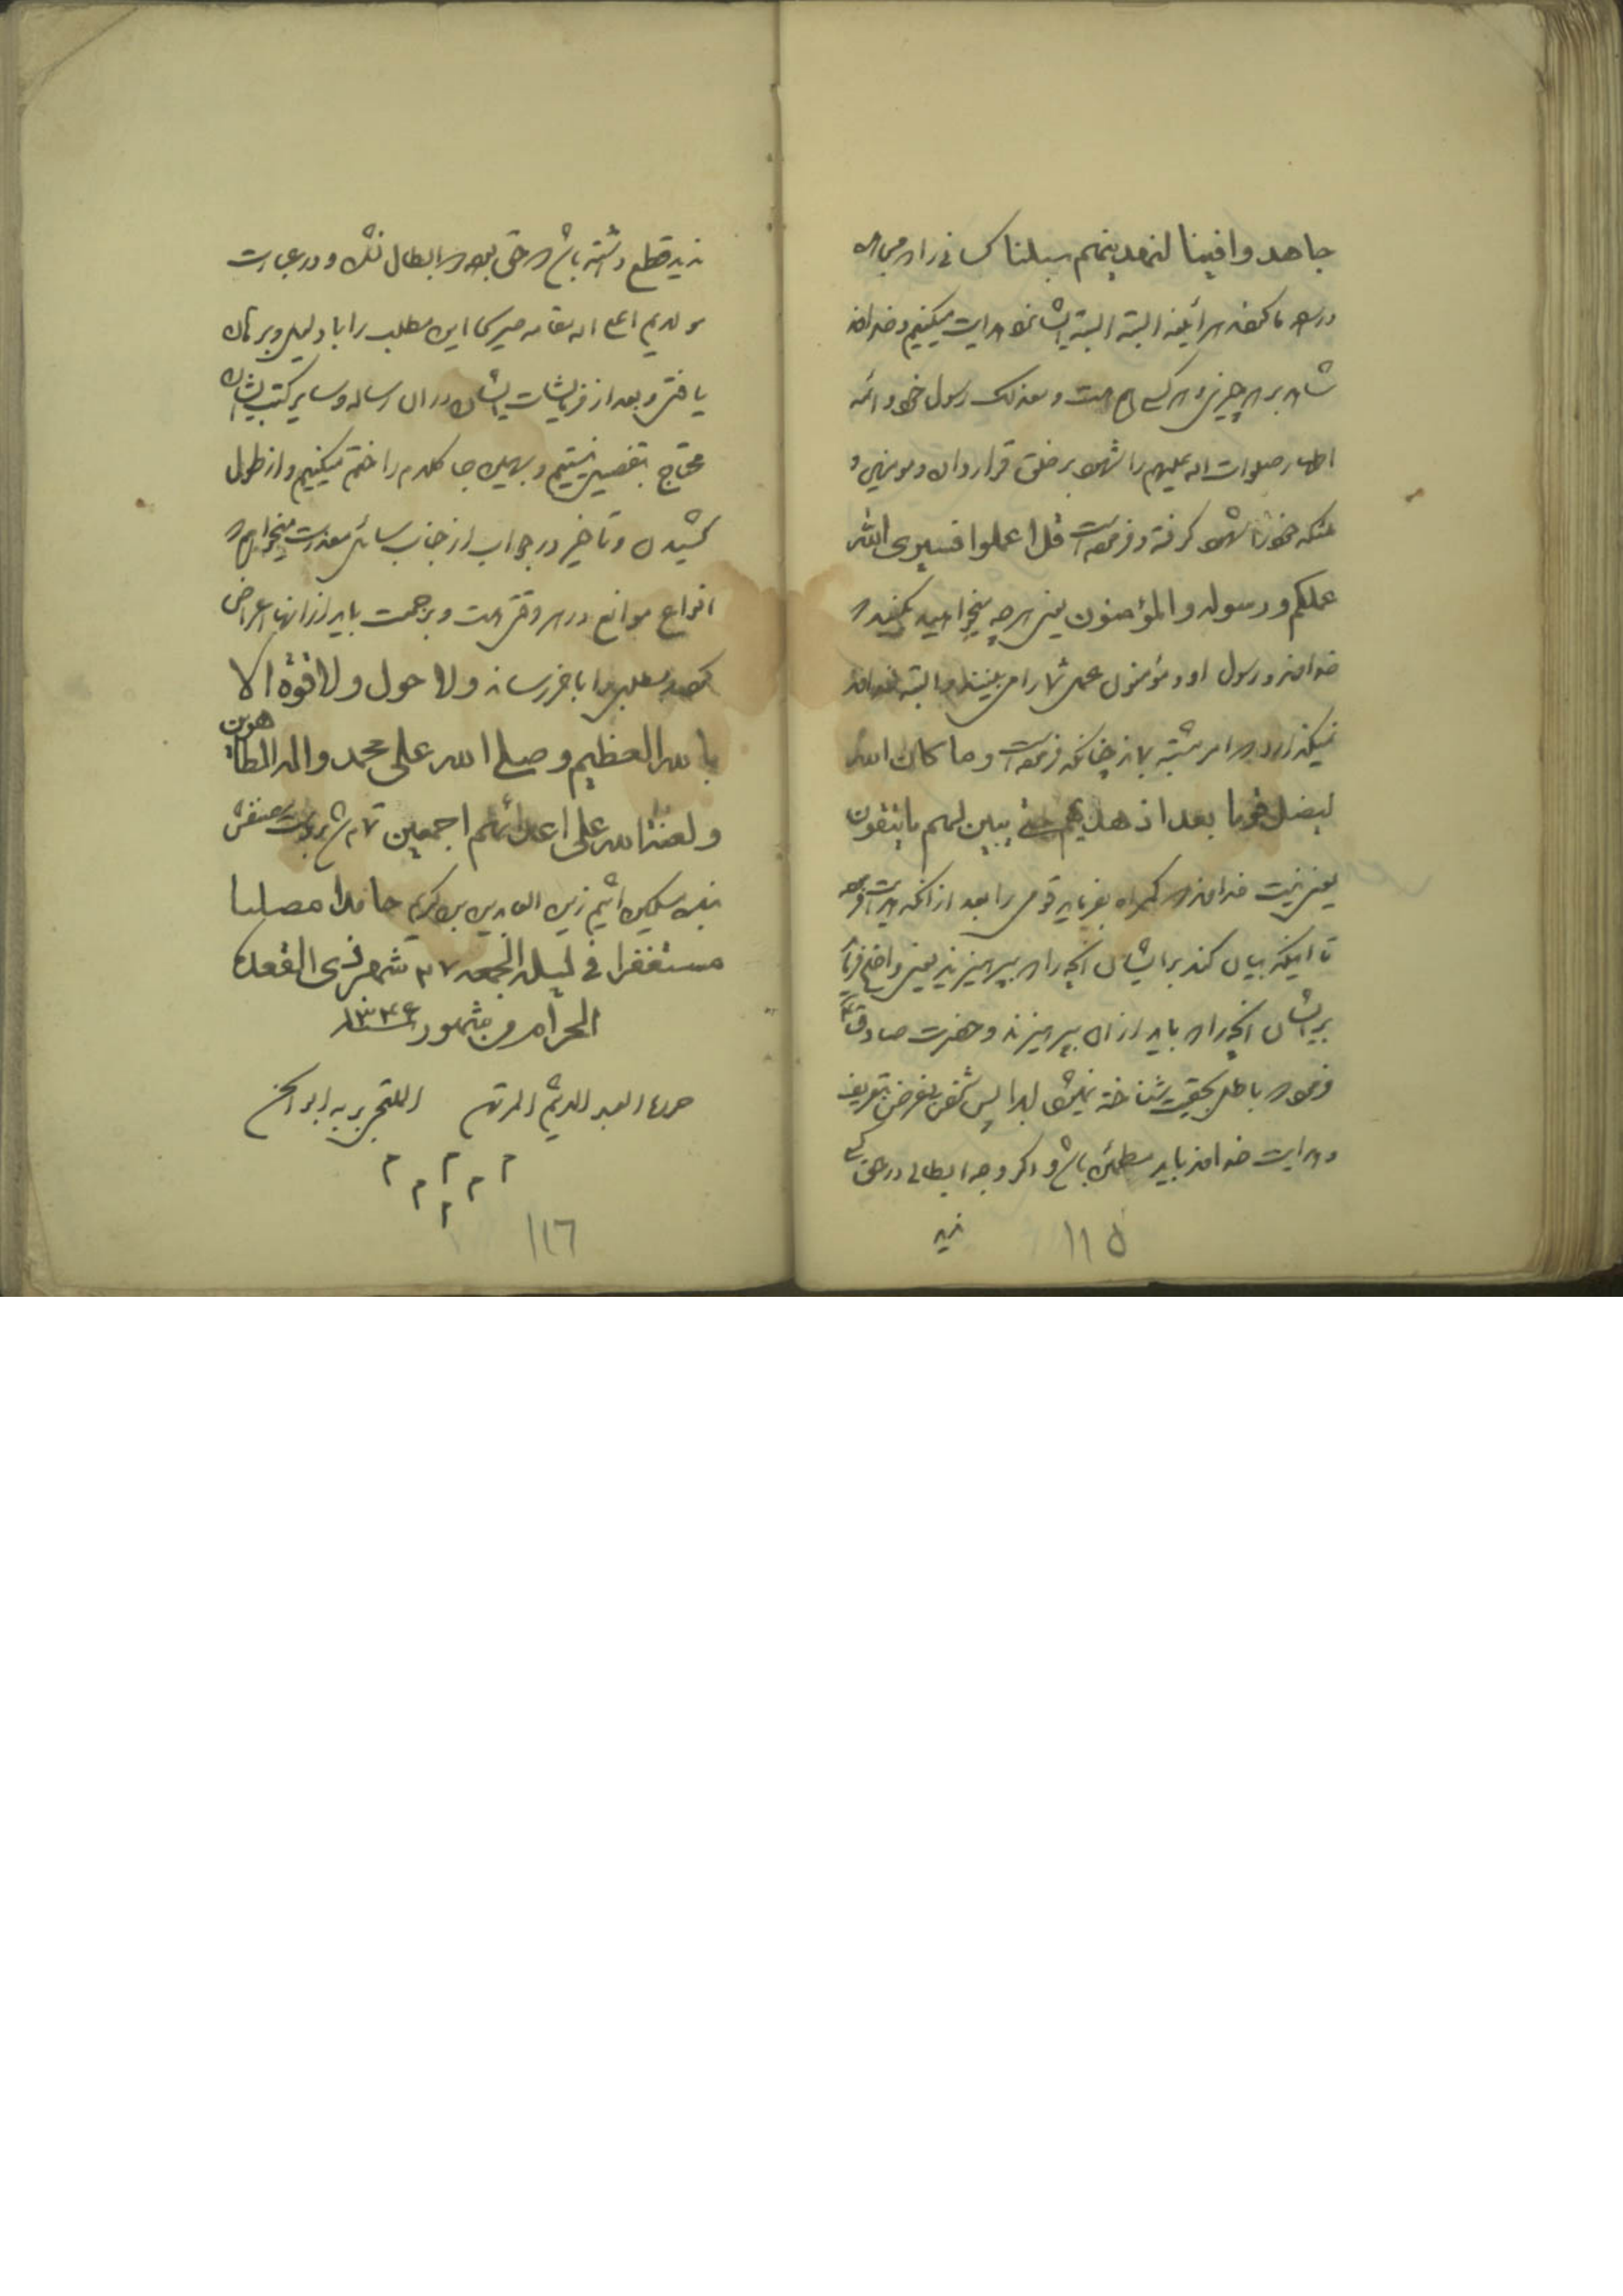 جاهدوا فینا لنهدینهم سبلنا کسانی را که مجاهده
در راه ما کنند هر آینه البته البته ایشان را هدایت میکنیم و خداوند
شاهد بر هر چیزی و هر کسی هم هست و معذلک رسول خود و ائمه
اطهار صلوات الله علیهم را شهود بر خلق قرار داده و مومنین و
ملئکه خود را شهود گرفته و فرموده است قل اعملوا فسیری الله
عملکم و رسوله و المؤمنون یعنی هر چه میخواهید بکنید که
خداوند و رسول او و مؤمنون عمل شما را می بینند و البته خداوند
نمیگذارد که امر مشتبه بماند چنانکه فرموده است و ما کان الله
لیضل قوما بعد اذ هدیهم حتی یبین لهم ما یتقون
یعنی نیست خداوند که گمراه بفرماید قومی را بعد از آنکه هدایت فرموده
تا اینکه بیان کند برای ایشان آنچه را که بپرهیزند یعنی واضح فرماید
بر ایشان آنچه را که باید از آن بپرهیزند و حضرت صادق ع
فرموده که باطل بحقیت شناخته نمیشود ابدا پس شخص بیغرض بتعریف
و هدایت خداوند باید مطمئن باشد و اگر وجه ابطالی در حق کسی
ندید
۱۱۵
ندید قطع داشته باشد که حق بوده که ابطال نشده و در عبارت
مولای اعلی الله مقامه سیر کما این مطلب را با دلیل و برهان
یافتی و بعد از فرمایشات ایشان در آن رساله و سایر کتب ایشان
محتاج بتفصیل نیستیم و بهمین جا کلام را ختم میکنیم و از طول
کشیدن و تاخیر در جواب از جناب سائل معذرت میخواهم که
انواع موانع در هر وقتی هست و بزحمت باید از آنها اعراض
کرد و مطلبی را باخر رساند و لا حول و لا قوة الا
بالله العظیم و صلی الله علی محمد و آله الطاهرین
و لعنة الله علی اعدائهم اجمعین تمام شد بر دست مصنفش
بنده مسکین اثیم زین العابدین بن کریم حامدا مصلیا
مستغفرا فی لیلة الجمعه ۲۷ شهر ذی القعدة
الحرام من شهور سنه ۱۳۴۶
حرره العبد الاثیم المرتهن الملتجی بربه ابو الحسن
م م م م م م
۱۱٦